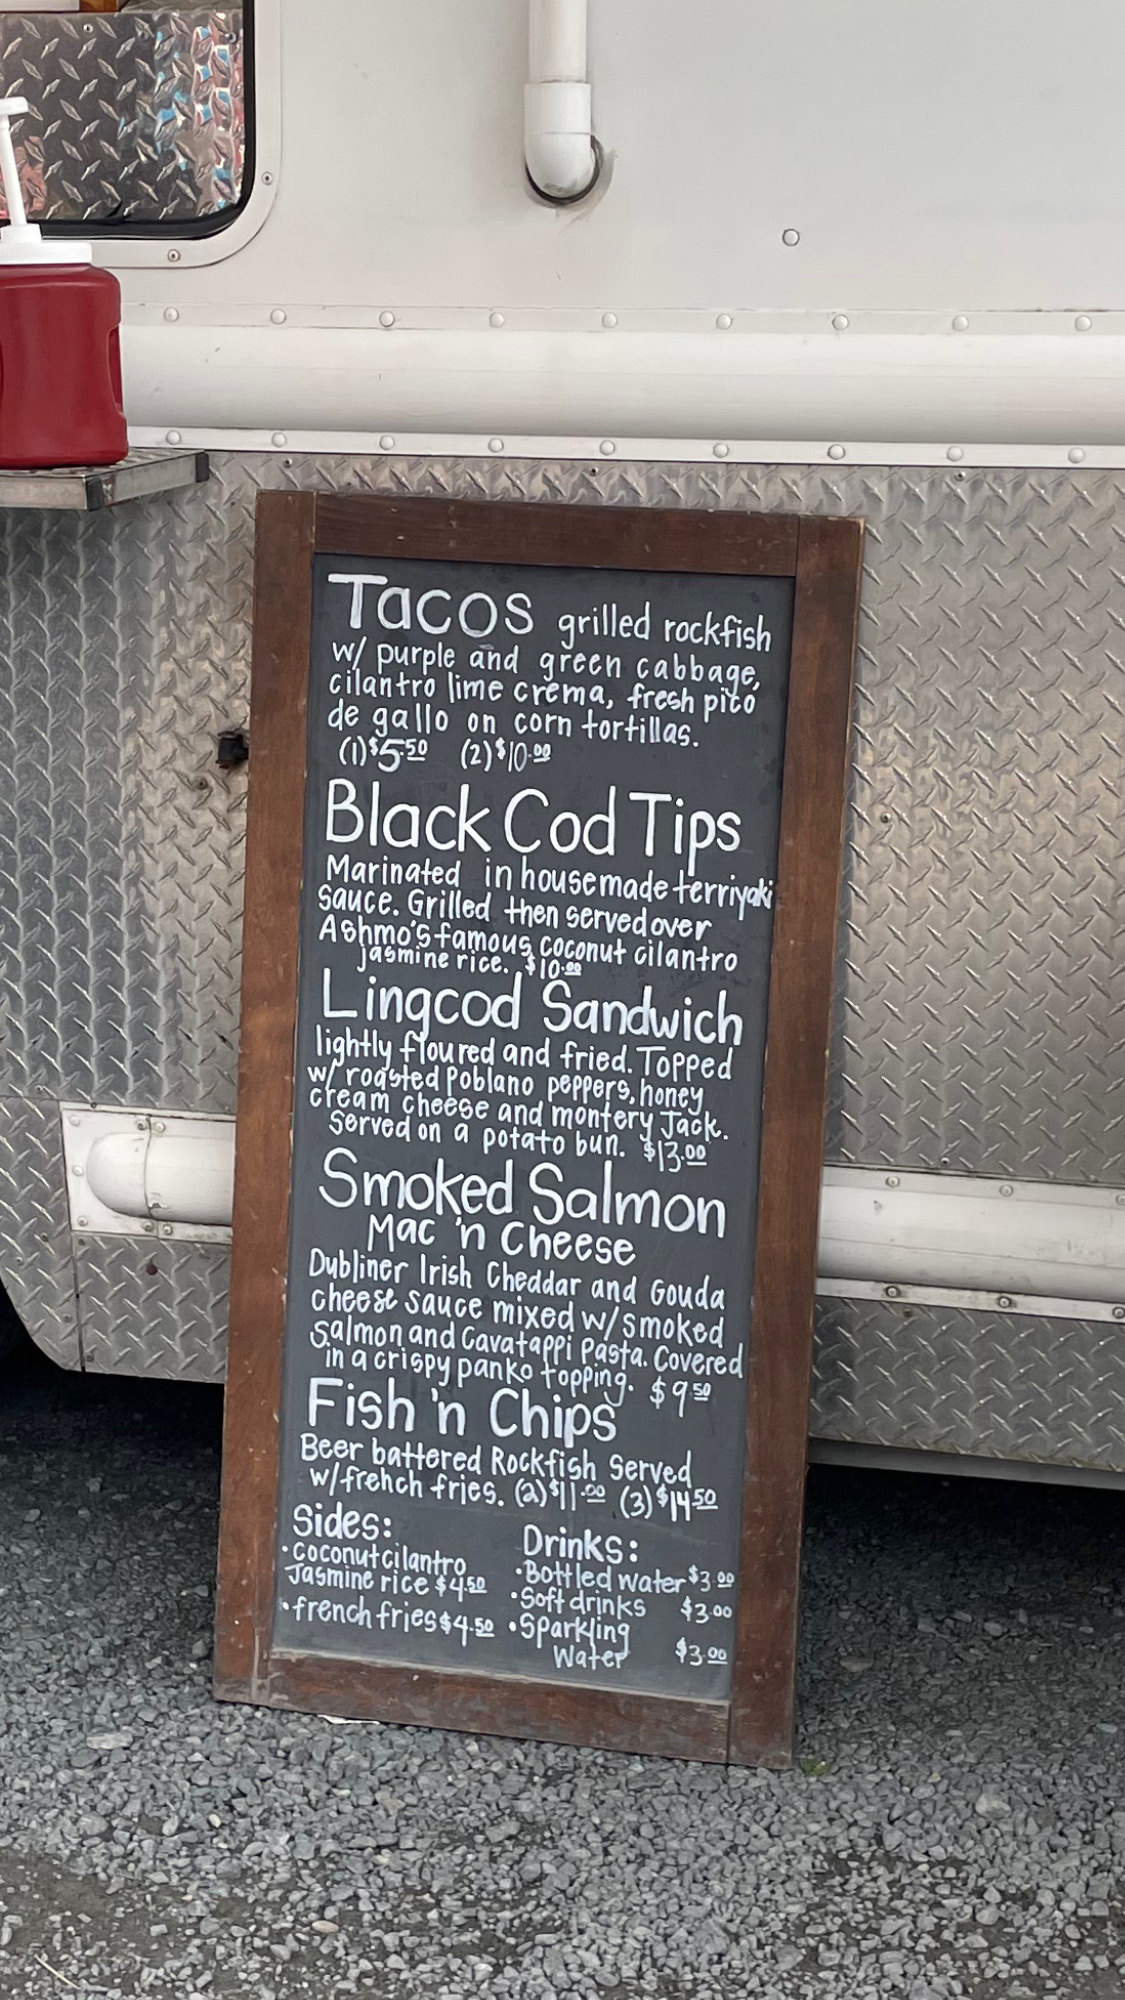 Tacos grilled rockfish
w/ purple and green cabbage,
cilantro lime crema, fresh pico
de gallo on corn tortillas.
(1) $5.50 (2) $10.00
Black Cod Tips
Marinated in housemade terriyaki
sauce. Grilled then served over
Ashmo's famous coconut cilantro
jasmine rice. $10.00
Lingcod Sandwich
lightly floured and fried. Topped
w/ roasted Poblano peppers, honey
cream cheese and montery Jack.
Served on a potato bun. $13.00
Smoked Salmon
Mac 'n Cheese
Dubliner Irish Cheddar and Gouda
cheese sauce mixed w/ smoked
Salmon and Cavatappi Pasta. Covered
in a crispy panko topping. $9.50
Fish 'n Chips
Beer battered Rockfish Served
w/ french fries. (2) $11.00 (3) $14.50
Sides:
• Coconut cilantro
Jasmine rice $4.50
• french fries $4.50
Drinks:
• Bottled water $3.00
• Soft drinks $3.00
• Sparkling
Water $3.00